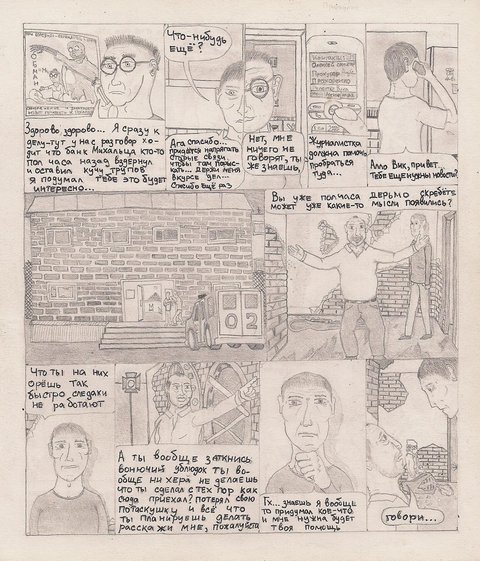 ОБМАН
Здорово здорово... Я сразу к
делу-тут у нас разговор хо-
дит что банк Михалыча кто-то
пол часа назад вздернул
и оставил кучу трупов
Я подумал тебе это будет
интересно...
Что-нибудь
ещё?
Ага спасибо...
придётся напрягать
старые связи
чтобы там порыс-
кать... держи меня
вкурсе дел...
Спасибо ещё раз
Нет, мне
ничего не
говорят, ты
же знаешь,
Контакты
Прокурор
Журналистка
должна помочь
пробраться
туда...
Алло Вик, привет
Тебе ещё нужны новости?
02
Вы уже полчаса дерьмо скребёте
может уже какие-то мысли появились?
Что ты на них
орёшь так
быстро следаки
не работают
А ты вообще заткнись
вонючий ублюдок ты во-
обще ни хера не делаешь
что ты сделал с тех пор как
сюда приехал? Потерял свою
потаскушку и всё что
ты планируешь делать
расскажи мне, пожалуйста
Гх... знаешь я вообще
то придумал кое-что
и мне нужна будет
твоя помощь
говори...